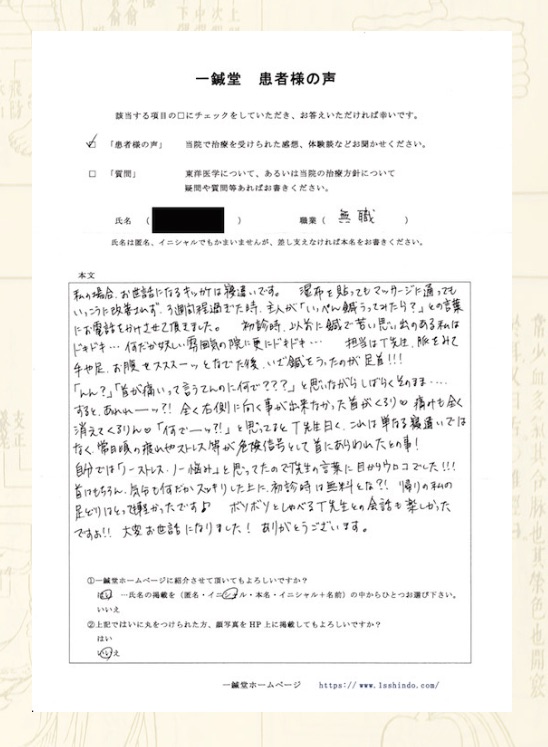 一鍼堂 患者様の声
該当する項目の□にチェックをしていただき、お答えいただければ幸いです。
□ 「患者様の声」 当院で治療を受けられた感想、体験談などお聞かせください。
□ 「質問」 東洋医学について、あるいは当院の治療方針について
疑問や質問等あればお書きください。
氏名 ( ) 職業 ( 無職 )
氏名は匿名、イニシャルでもかまいませんが、差し支えなければ本名をお書きください。
本文
私の場合、お世話になるキッカケは寝違いです。 湿布を貼ってもマッサージに通っても
いっこうに改善されず、3週間程過ぎた時、主人が「いっぺん鍼うってみたら?」との言葉
にお電話をかけさせて頂きました。 初診時、以前に鍼で苦い思い出のある私は
ドキドキ…何だか妖しい雰囲気の院に更にドキドキ… 担当はT先生、脈をみて
手や足、お腹をスススーッとなでた後、いざ鍼をうったのが足首!!!
「んん?」「首が痛いって言うてんのに何で???」と思いながらしばらくそのまま….
すると、あれれーーッ?! 全く右側に向く事が出来なかった首がくるり♡ 痛みも全く
消えてくるりん♡「何でーーッ?!」と思ってますとT先生曰く、これは単なる寝違いでは
なく、常日頃の疲れやストレス等が危険信号として首にあらわれたとの事!
自分では「ノーストレス、ノー悩み」と思ってたのでT先生の言葉に目からウロコでした!!!
首はもちろん、気分も何だかスッキリした上に、初診時は無料とな?! 帰りの私の
足どりはとっても軽かったです♪ ボソボソとしゃべるT先生との会話も楽しかった
ですよ!! 大変お世話になりました! ありがとうございます。
①一鍼堂ホームページに紹介させて頂いてもよろしいですか?
はい …氏名の掲載を (匿名・イニシャル・本名・イニシャル+名前) の中からひとつお選び下さい。
いいえ
②上記ではいに丸をつけられた方、顔写真を HP 上に掲載してもよろしいですか?
はい
いいえ
一鍼堂ホームページ https://www.1sshindo.com/